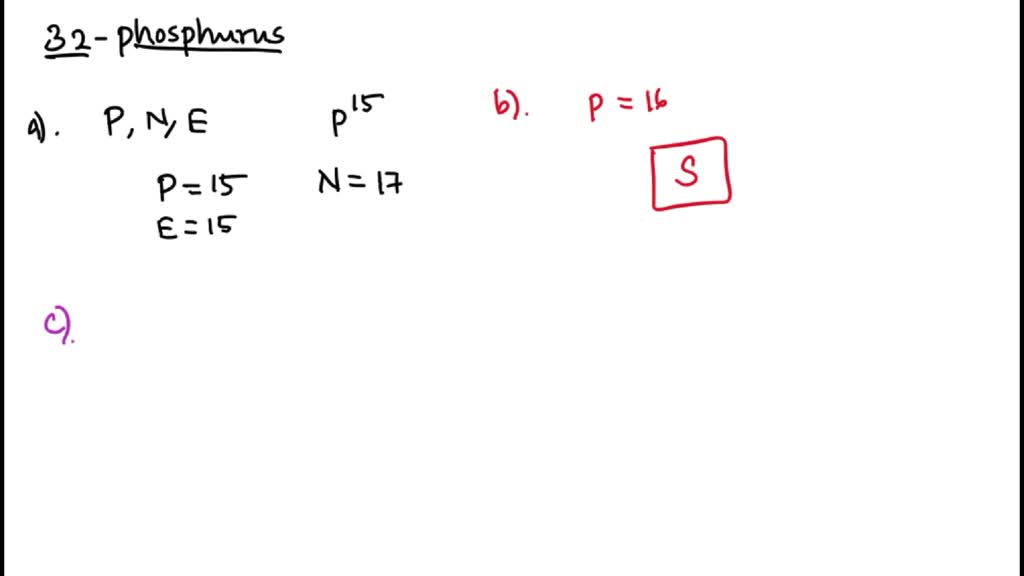 32-phosphurus
a). P, N, E P¹⁵
P = 15 N = 17
E = 15
b). P = 16
S
c).